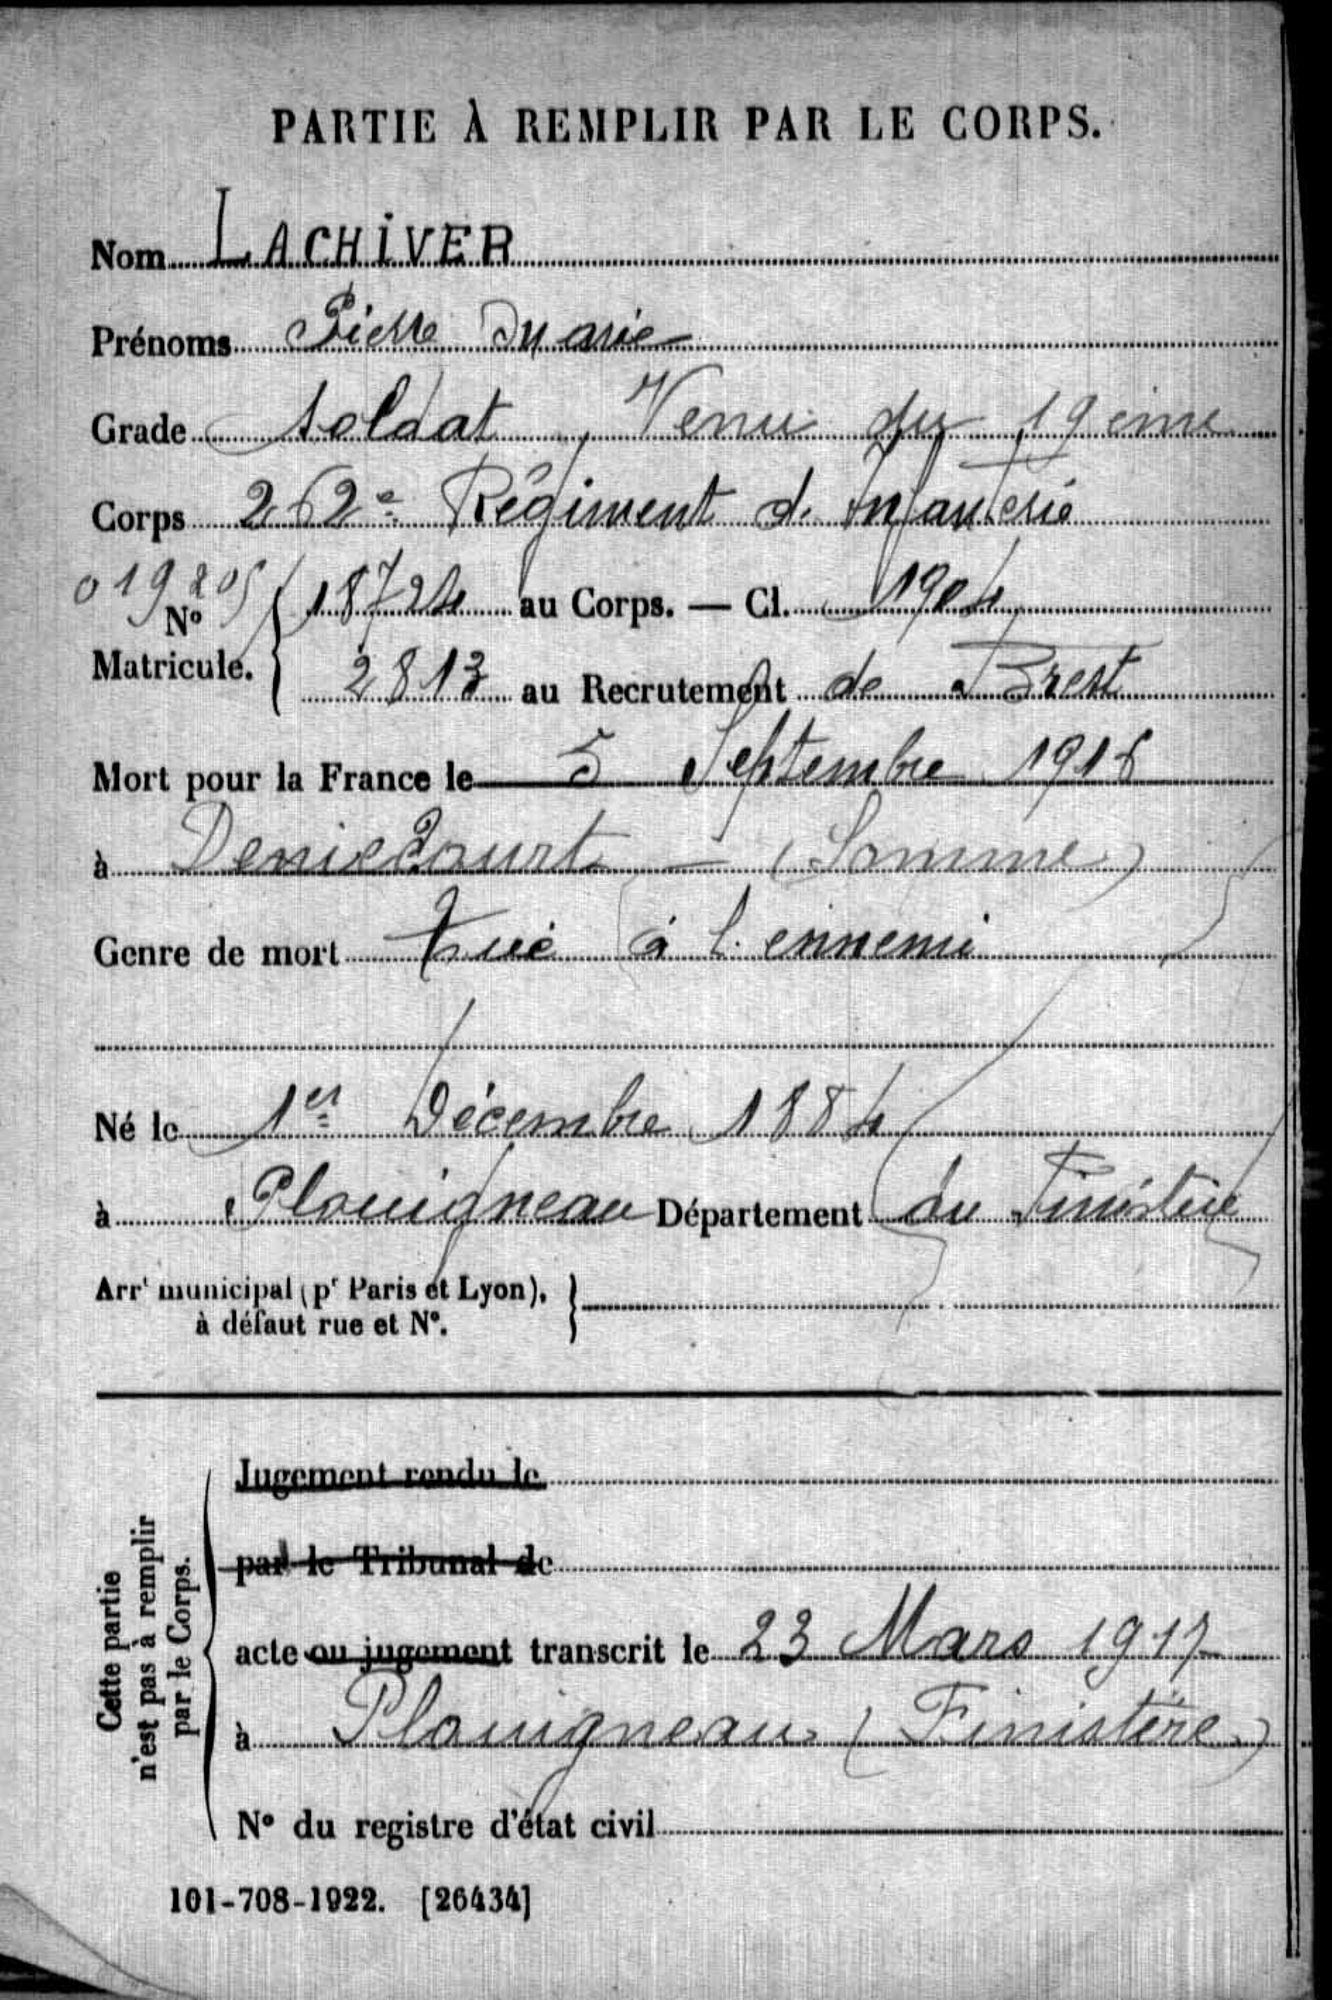 PARTIE À REMPLIR PAR LE CORPS.
Nom LACHIVER
Prénoms Pierre Marie
Grade Soldat, Venu du 19ème
Corps 262e Régiment d'Infanterie
019205
No Matricule. { 18724 au Corps. — Cl. 1904
2813 au Recrutement de Brest
Mort pour la France le 5 Septembre 1916
à Deniecourt — (Somme)
Genre de mort tué à l'ennemi
Né le 1er Décembre 1884
à Plouigneau Département du Finistère
Arrt municipal (pr Paris et Lyon), }
à défaut rue et No.
Cette partie
n'est pas à remplir
par le Corps.
Jugement rendu le
par le Tribunal de
acte ou jugement transcrit le 23 Mars 1917
à Plouigneau (Finistère)
No du registre d'état civil
101-708-1922. [26434]